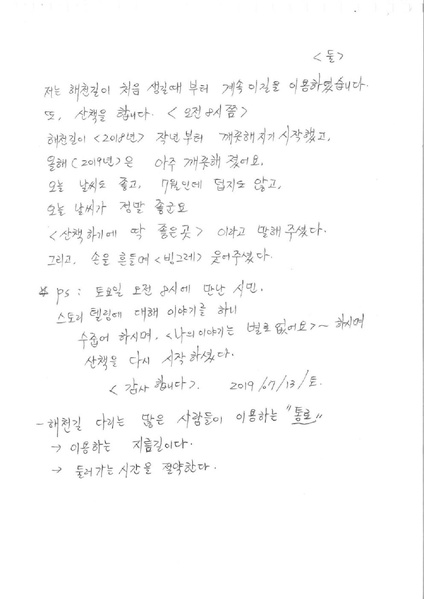 <둘>
저는 해천길이 처음 생길때 부터 계속 이길을 이용하였습니다.
또, 산책을 합니다. <오전 8시쯤>
해천길이 <2018년> 작년부터 깨끗해지기 시작했고,
올해(2019년)은 아주 깨끗해 졌어요.
오늘 날씨도 좋고, 7월인데 덥지도 않고,
오늘 날씨가 정말 좋군요
<산책하기에 딱 좋은 곳> 이라고 말해 주셨다.
그리고, 손을 흔들며 <빙그레> 웃어주셨다.
* ps : 토요일 오전 8시에 만난 시민.
스토리 텔링에 대해 이야기를 하니
수줍어 하시며, <나의 이야기는 별로 없어요>~ 하시며
산책을 다시 시작 하셨다.
<감사 합니다>. 2019/07/13/토.
- 해천길 다리는 많은 사람들이 이용하는 "통로"
→ 이용하는 지름길이다.
→ 둘러가는 시간을 절약한다.